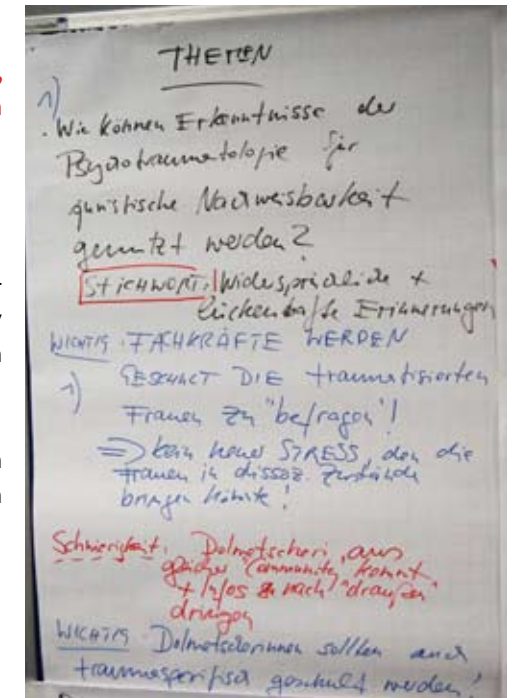 THEMEN
1)
. Wie können Erkenntnisse der
Psychotraumatologie für
juristische Nachweisbarkeit
genutzt werden?
STICHWORT: Widersprüchliche +
lückenhafte Erinnerungen
WICHTIG: FACHKRÄFTE WERDEN
1) GESCHULT DIE traumatisierten
Frauen zu "befragen"!
⇒ kein neuer STRESS, den die
Frauen in dissoz. Zustände
bringen könnte!
Schwierigkeit: Dolmetscherin aus
gleicher Community kommt
+ Infos nach "draußen"
dringen
WICHTIG Dolmetscherinnen sollten auch
traumaspezifisch geschult werden!